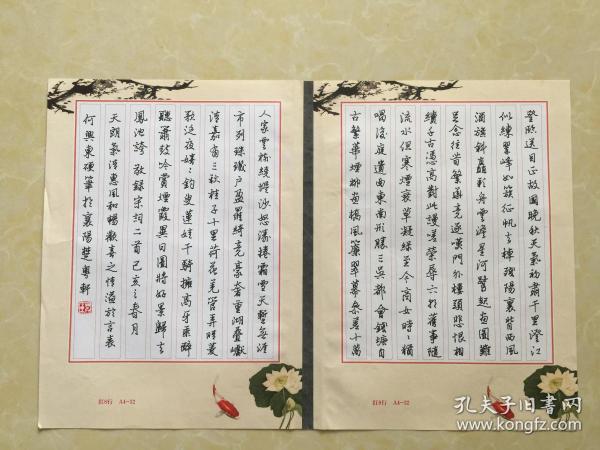 登臨送目正故國晚秋天氣初肅千里澄江
似練翠峰如簇征帆去棹殘陽裏背西風
酒旗斜矗彩舟雲澹星河鷺起畫圖難
足念往昔繁華競逐嘆門外樓頭悲恨相
續千古憑高對此謾嗟榮辱六朝舊事隨
流水但寒煙衰草凝綠至今商女時〻猶
唱後庭遺曲東南形勝三吳都會錢塘自
古繁華煙柳畫橋風簾翠幕參差十萬
人家雲樹繞堤沙怒濤捲霜雪天塹無涯
市列珠璣戶盈羅綺競豪奢重湖疊巘
清嘉有三秋桂子十里荷花羌管弄晴菱
歌泛夜嬉〻釣叟蓮娃千騎擁高牙乘醉
聽簫鼓吟賞煙霞異日圖將好景歸去
鳳池誇 敬錄宋詞二首己亥之春月
天朗氣清惠風和暢歡喜之情溢於言表
何興東硬筆於襄陽楚粵軒
8行 A4-32
8行 A4-32
孔夫子旧书网
www.kongfz.com